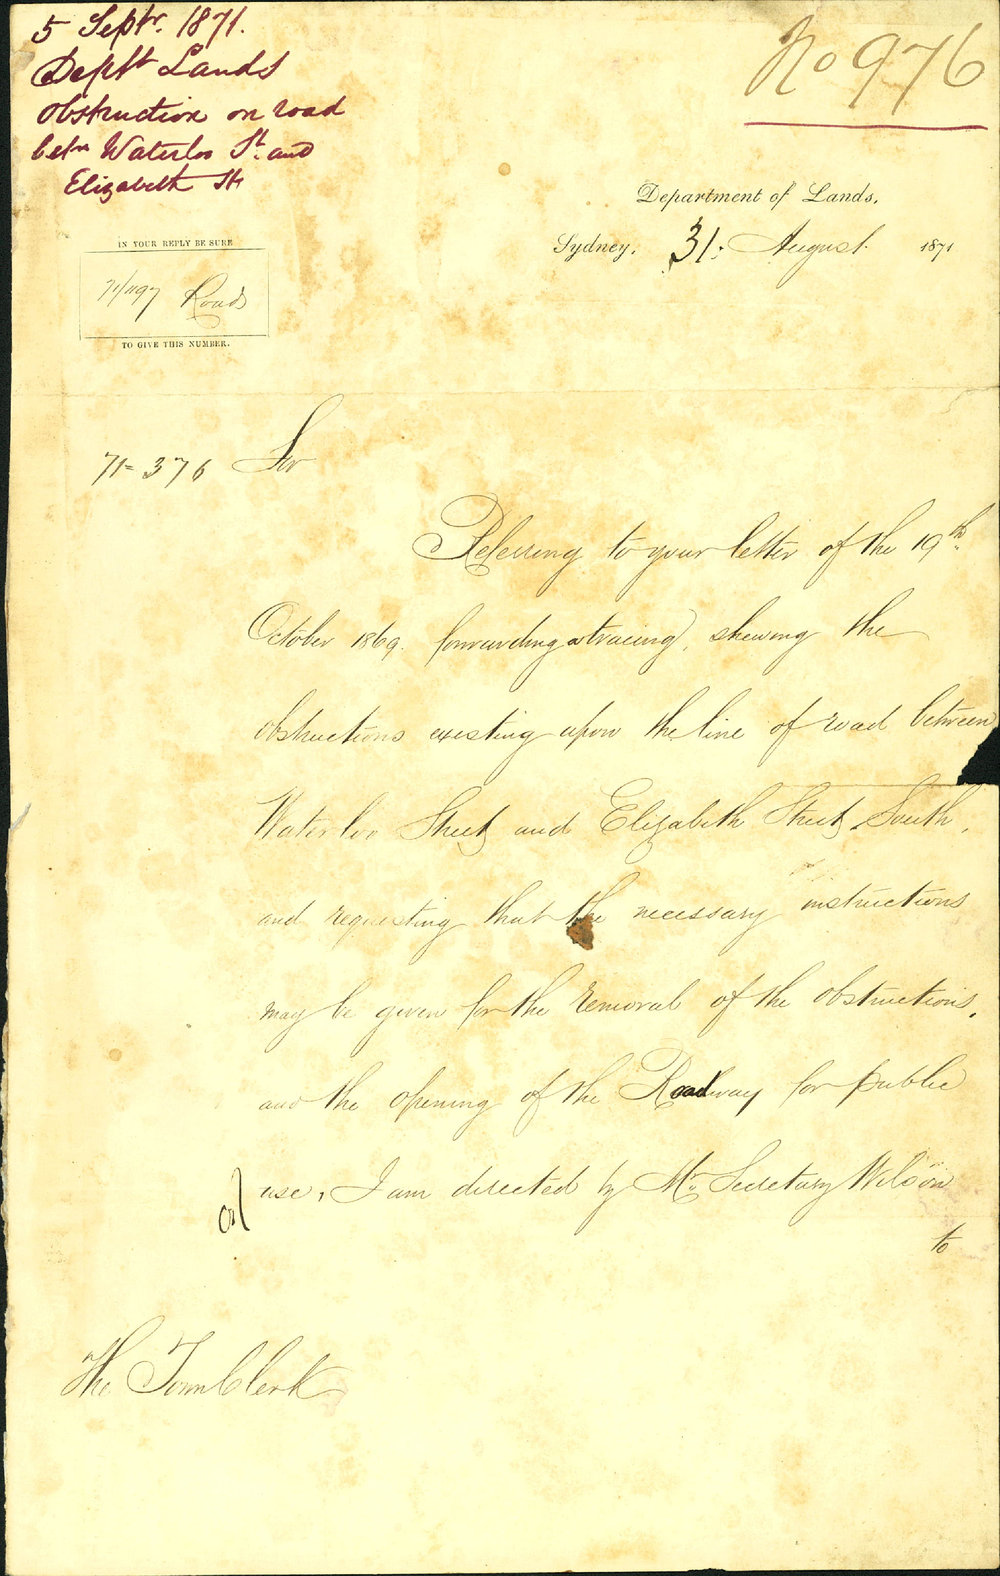 5 Septr. 1871.
Deptt Lands
Obstruction on road
betn Waterloo St. and
Elizabeth St
No 976
Department of Lands,
Sydney, 31. August 1871
IN YOUR REPLY BE SURE
Roads
TO GIVE THIS NUMBER.
71-376 Sir
Referring to your letter of the 19th.
October 1869. forwarding a tracing, shewing the
obstructions existing upon the line of road between
Waterloo Street and Elizabeth Street South,
and requesting that the necessary instructions
may be given for the removal of the obstructions,
and the opening of the Roadway for public
use, I am directed by Mr. Secretary Wilson
to
The Town Clerk